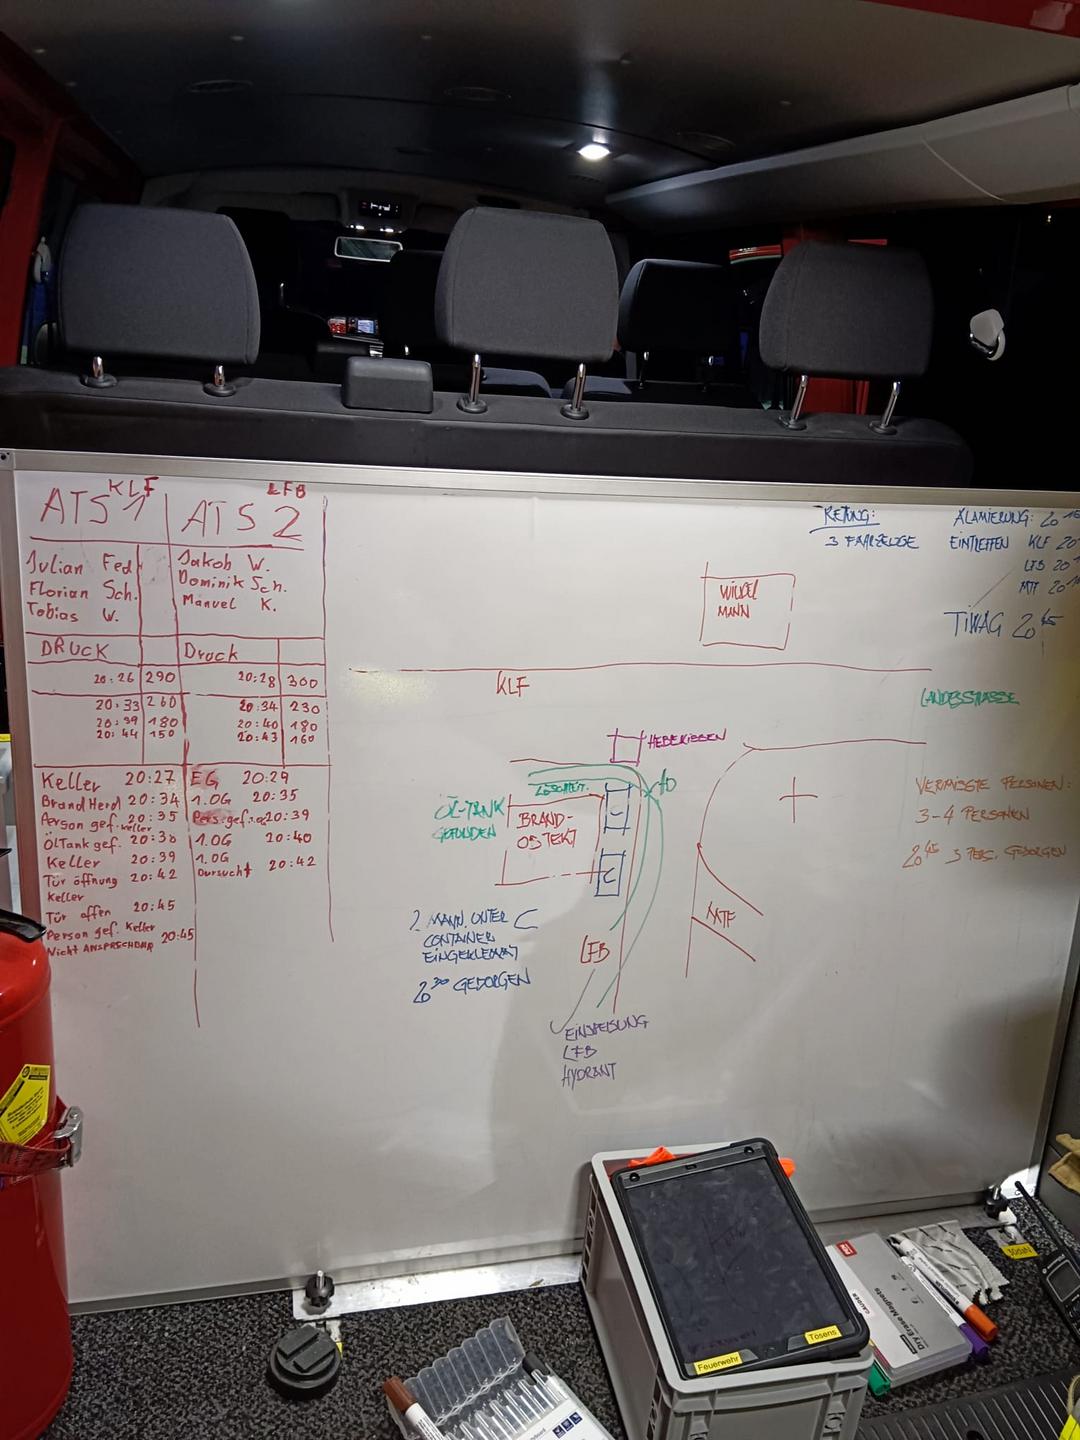 ATS 1 KLF
ATS 2 LFB
Julian Fed
Florian Sch.
Tobias W.
Jakob W.
Dominik Sch.
Manuel K.
DRUCK
20:26 290
20:33 260
20:39 180
20:44 150
Druck
20:28 300
20:34 230
20:40 180
20:43 160
Keller 20:27
Brand Herd 20:34
Person gef. Keller 20:35
ÖlTank gef. 20:38
Keller 20:39
Tür öffnung Keller 20:42
Tür offen 20:45
Person gef. Keller
Nicht ANSPRECHBAR 20:45
EG 20:29
1.OG 20:35
Pers. gef. 1.OG 20:39
1.OG 20:40
1.OG
Dursucht 20:42
RETTUNG:
3 FAHRZEUGE
ALAMIERUNG: 20
EINTREFFEN KLF 20
LFB 20
MTF 20
TIWAG 20 45
WIDDEL
MANN
KLF
LANDESSTRASSE
HEBEKISSEN
LÖSCHLEIT.
ÖL-TANK
GEFUNDEN
BRAND-
OBJEKT
C
C
VERMISSTE PERSONEN:
3-4 PERSONEN
20 45 3 PERS. GEBORGEN
MTF
2 MANN UNTER C
CONTAINER
EINGEKLEMMT
20 30 GEBORGEN
LFB
EINSPEISUNG
LFB
HYDRANT
Feuerwehr
Tösens
Dry Erase Magnets